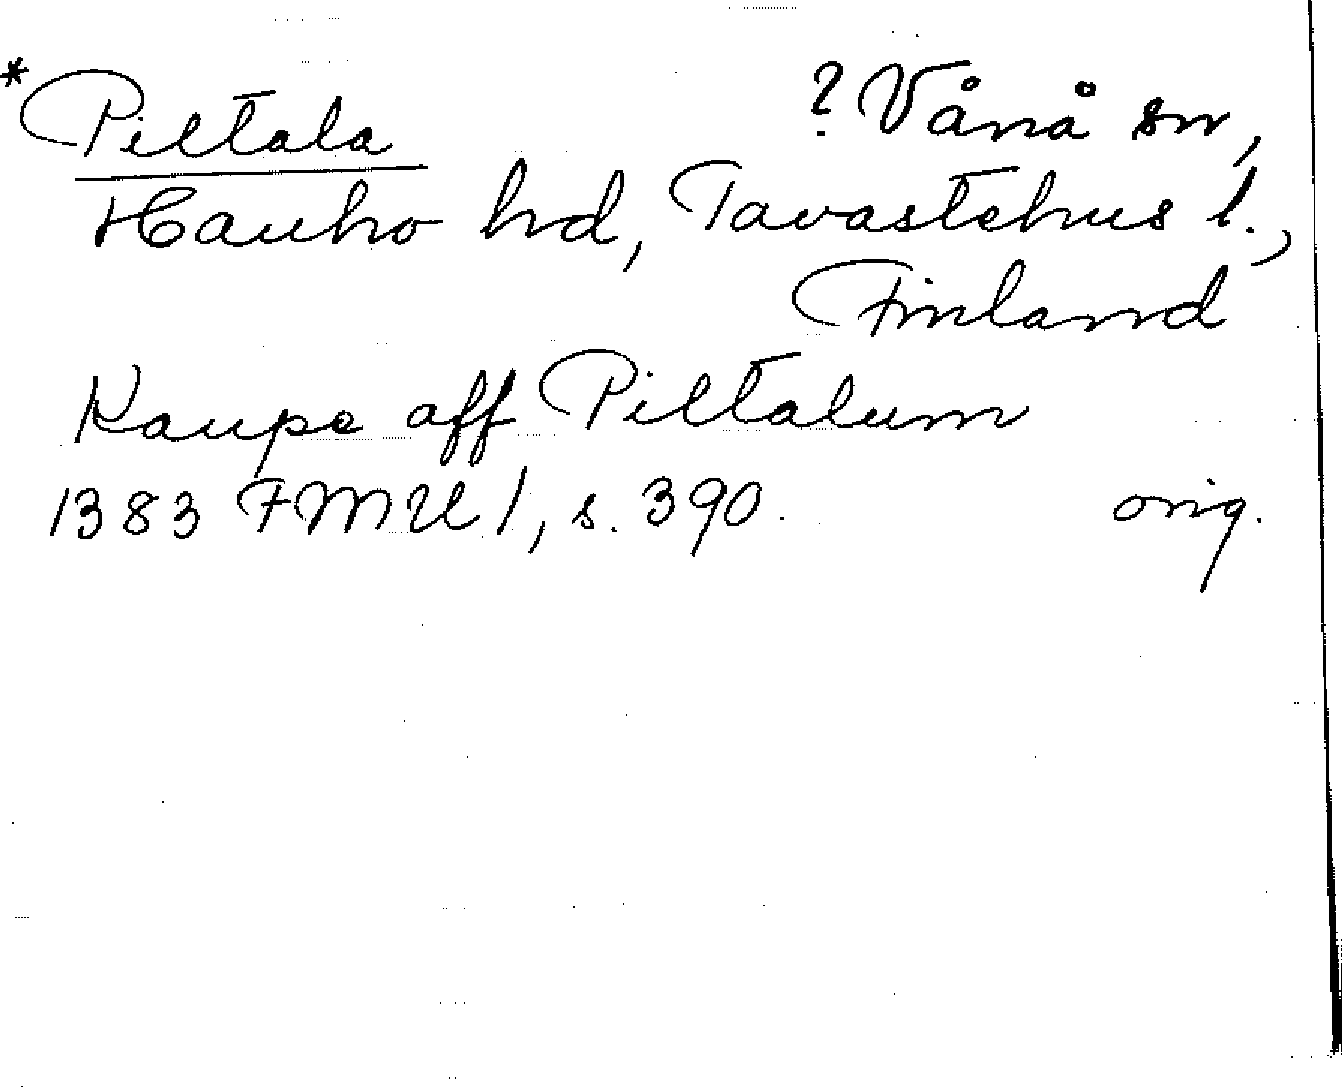 * Piltala ? Vånå sn,
Hauho hd, Tavastehus l.,
Finland
Kaupe aff Piltalum
1383 FMU 1, s. 390. orig.